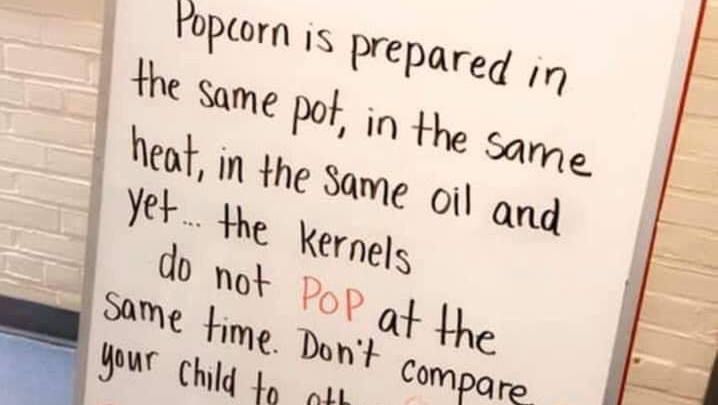 Popcorn is prepared in
the same pot, in the same
heat, in the same oil and
yet... the kernels
do not POP at the
same time. Don't compare
your child to